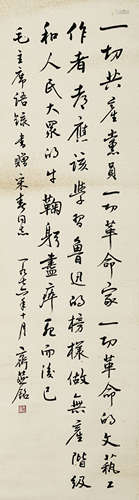 一切共产党員一切革命家一切革命的文艺工
作者都應該学習魯迅的榜樣做無产階级
和人民大眾的牛鞠躬盡瘁死而後已
毛主席語録書贈宋春同志
一九七六年十月 齊燕銘